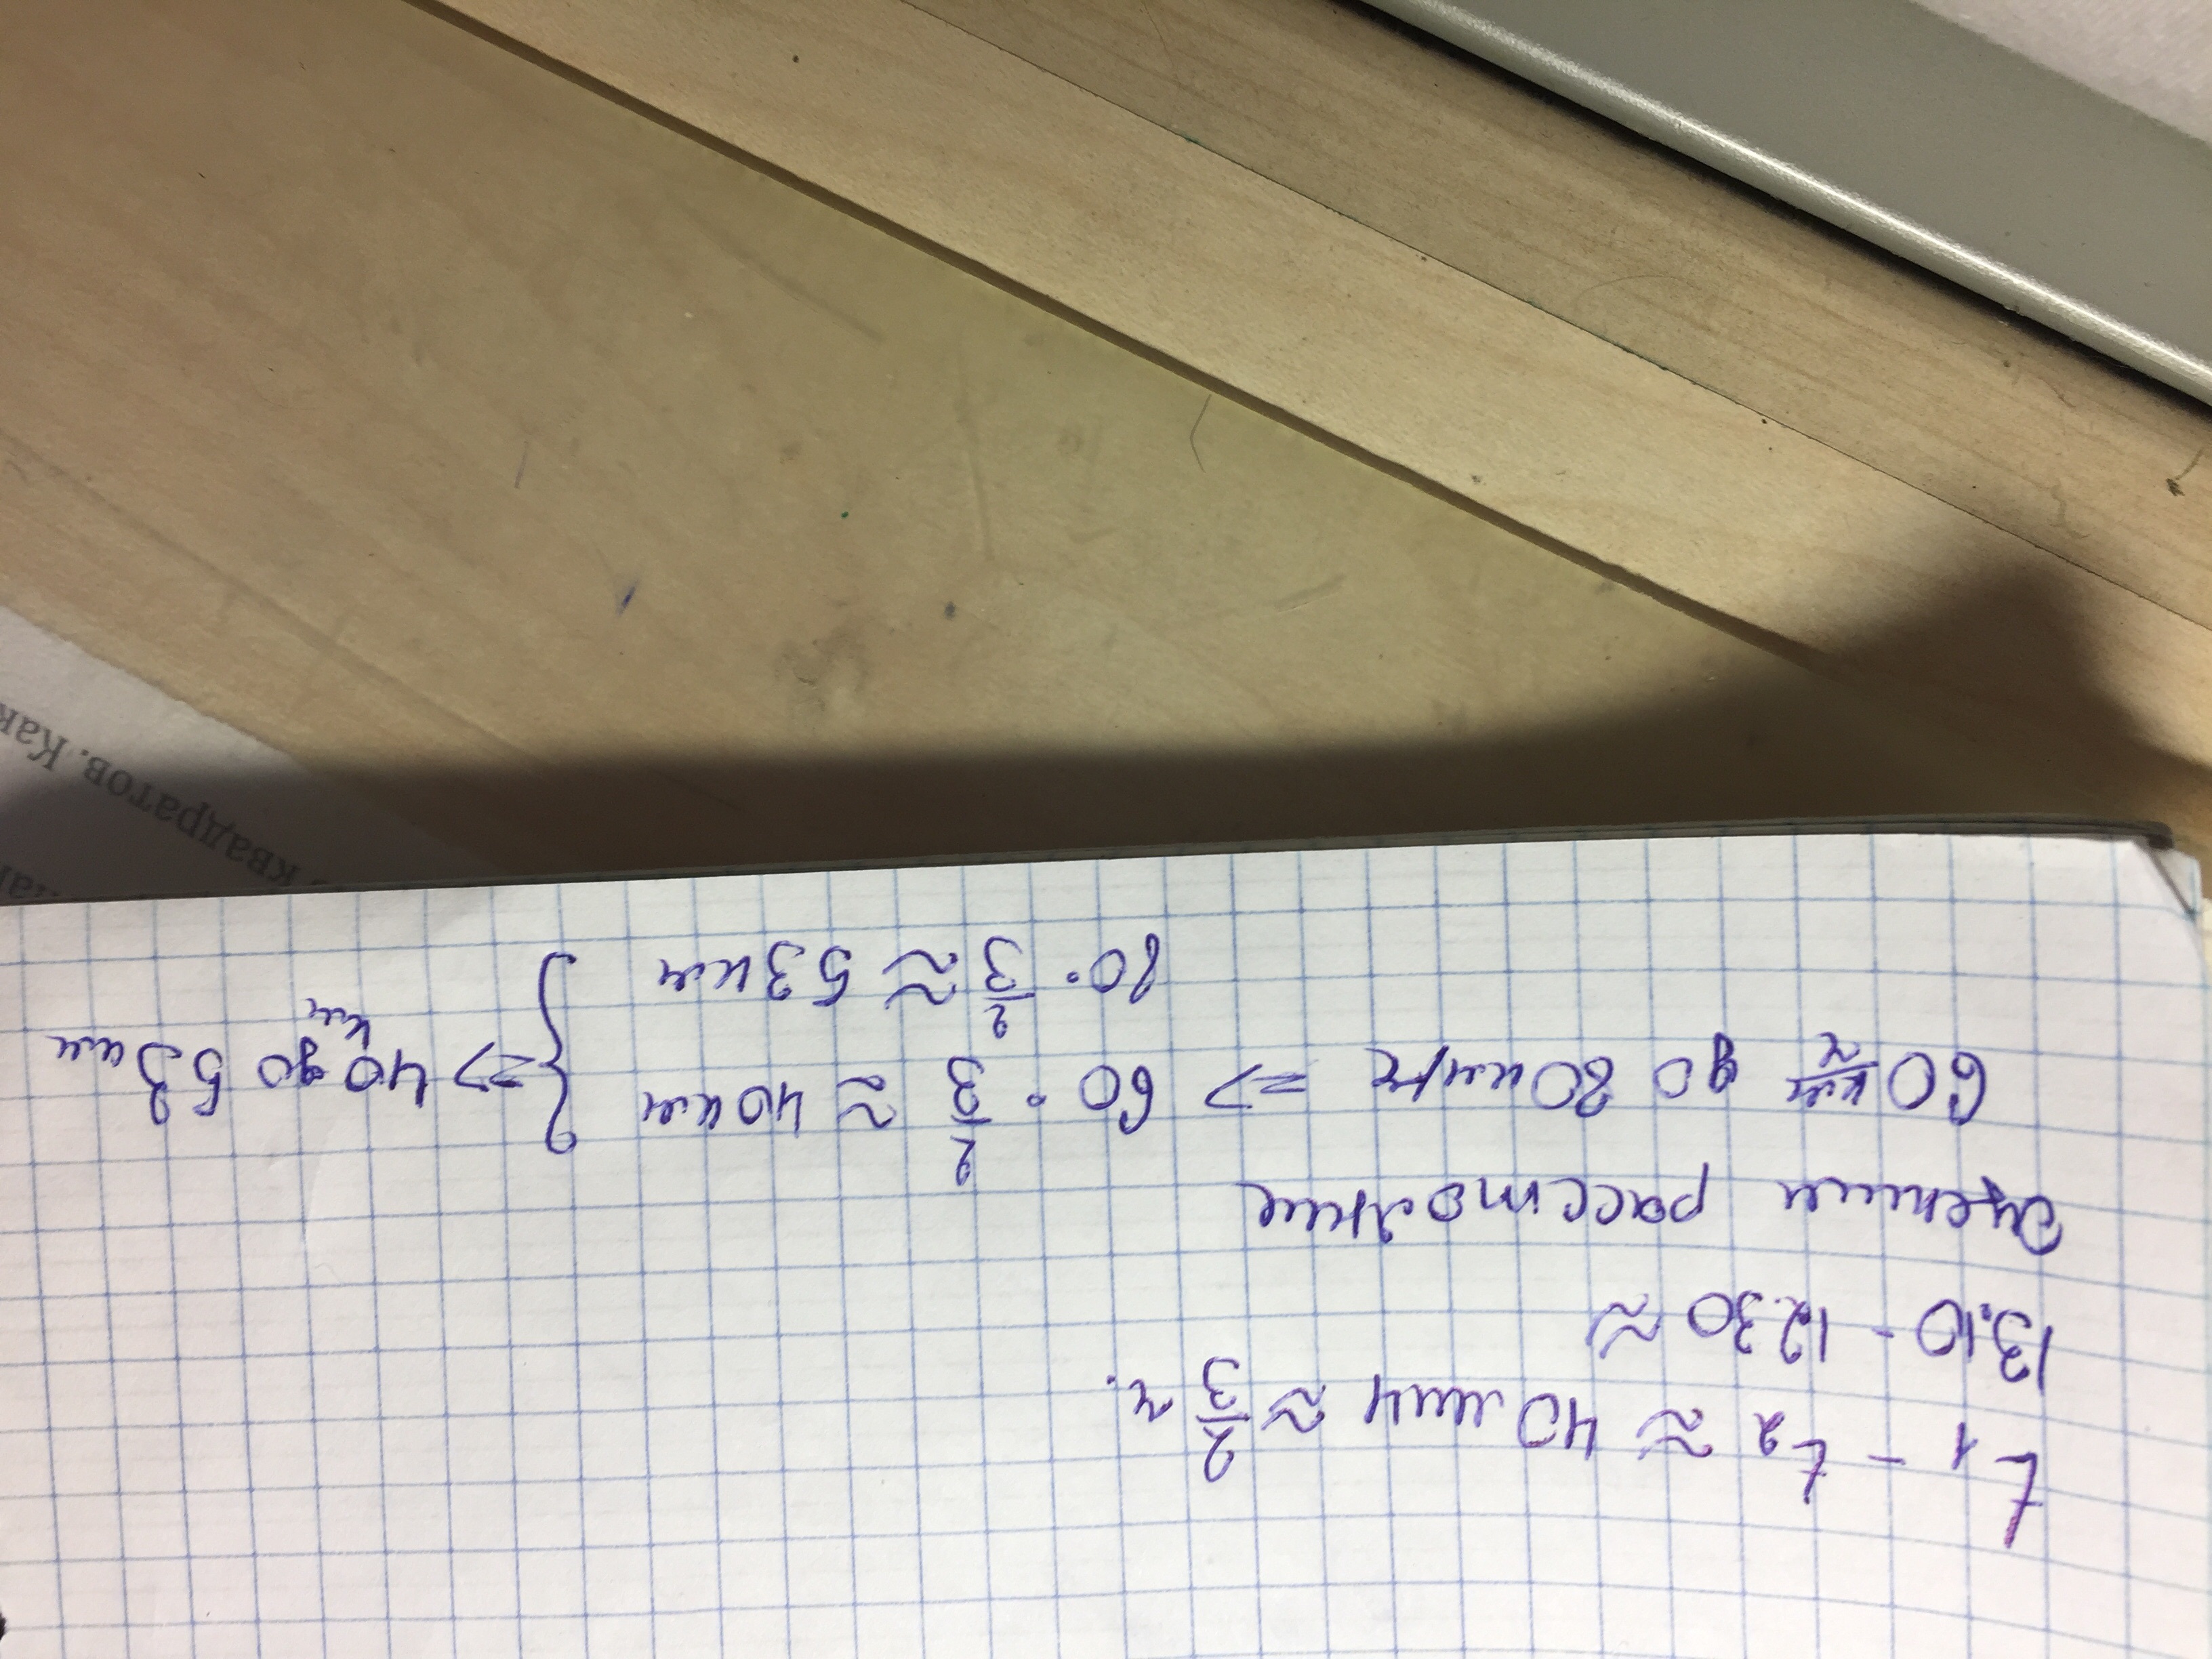 t1 - t2 ≈ 40 мин ≈ 2/3 ч.
13.10 - 12.30 ≈
Оценим расстояние
60 км/ч до 80 км/ч => 60 · 2/3 ≈ 40 км } => 40 км до 53 км
80 · 2/3 ≈ 53 км
квадратов. Как